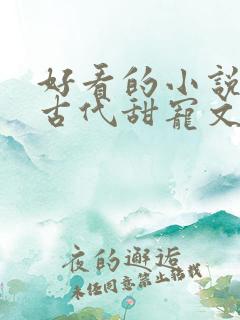 好看的小说
古代甜宠文
夜的邂逅
未经同意禁止转载